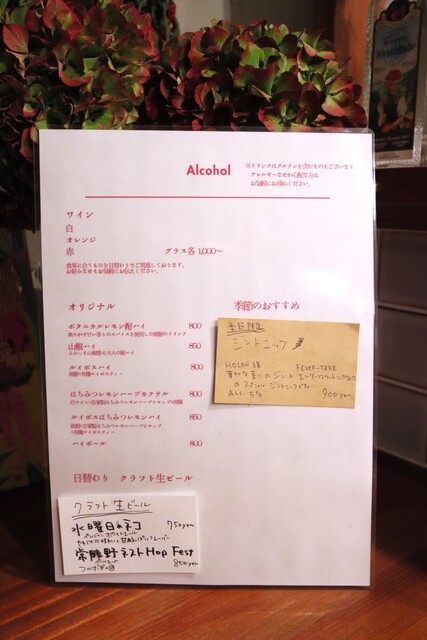 Alcohol
※ドリンクはグルテンを含むものもございます。
アレルギーなど心配な方は
お気軽にお尋ねください。
ワイン
白
オレンジ
赤 グラス各 1,000〜
食事に合うものを日替わりでご用意しております。
お好みなどもお気軽にお伝えください。
オリジナル
ボタニカルレモン酎ハイ 800
山椒ハイ 850
ルイボスハイ 800
はちみつレモンハーブカクテル 800
ルイボスはちみつレモンハイ 850
ハイボール 800
季節のおすすめ
季節限定
ジントニック
HOLON GIN FEVER-TREE
ALC. 5%
900yen
日替わり クラフト生ビール
クラフト生ビール
水曜日のネコ 750yen
常陸野ネスト Hop Fest
800yen